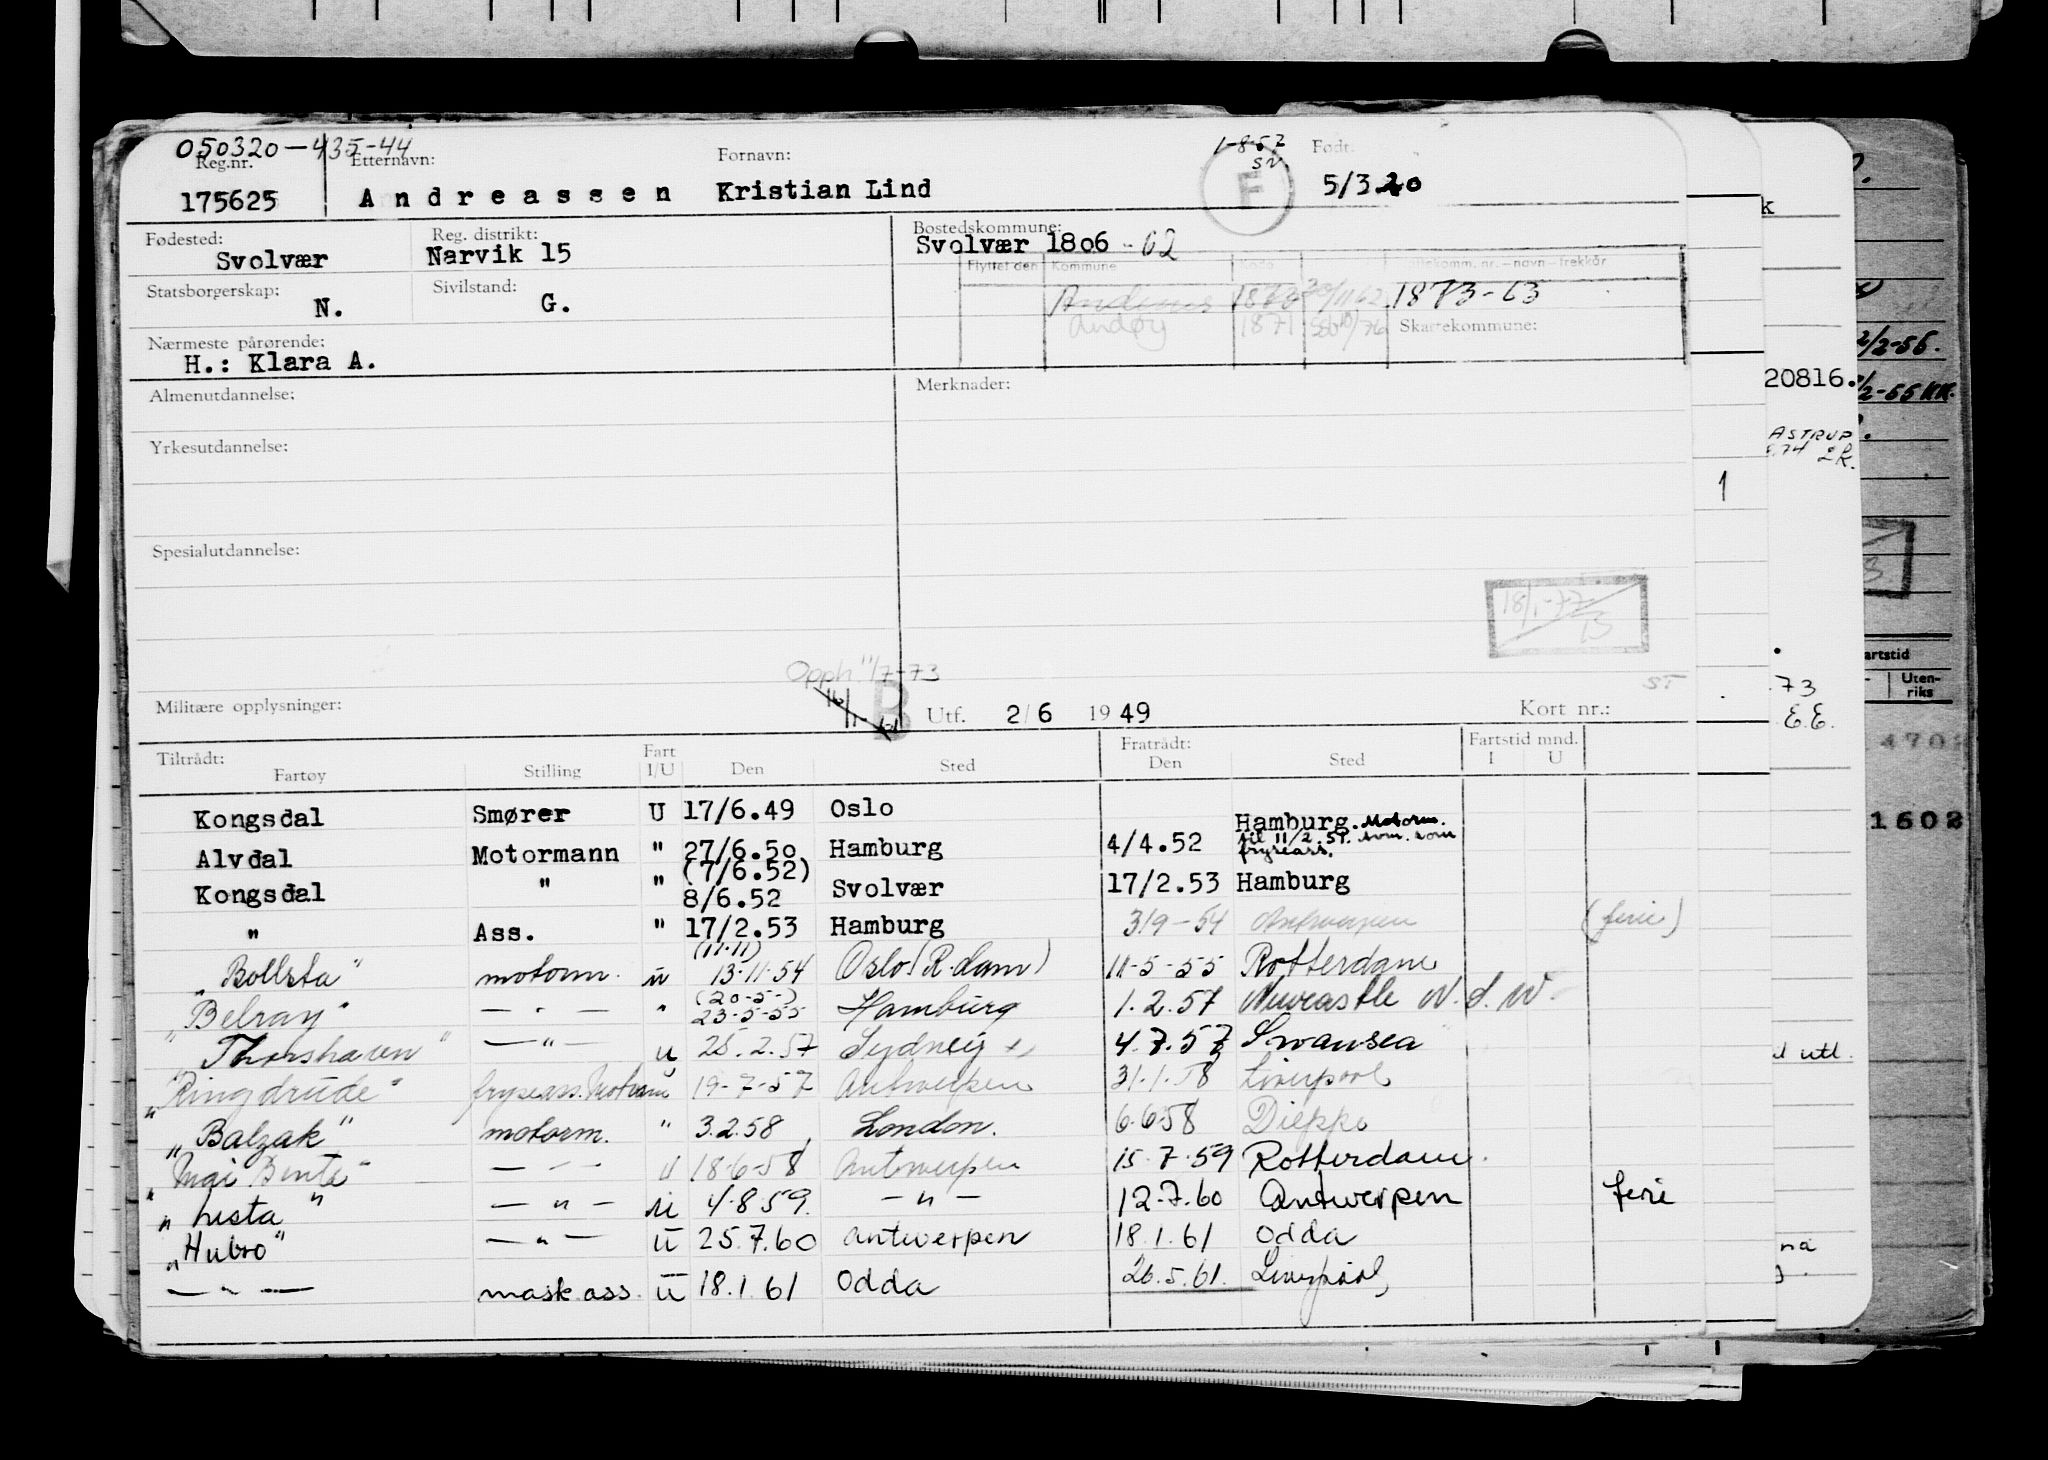 050320-435-44
Reg.nr. Etternavn: Fornavn: 1-8-57 SN. Født:
175625 Andreassen Kristian Lind F 5/3 20
Fødested: Reg. distrikt: Bostedskommune:
Svolvær Narvik 15 Svolvær 1806 - 62
Flyttet den Kommune Kode Skattekomm. nr. – navn – trekkår
Statsborgerskap: Sivilstand:
N. G. Andenes 1873 30/11 62 1873-63
Andøy 1871 SSB 10/76 Skattekommune:
Nærmeste pårørende:
H.: Klara A.
Almenutdannelse: Merknader:
Yrkesutdannelse:
Spesialutdannelse:
18/1-77 13
Opph. 11/7-73
ST
Militære opplysninger: B Utf. 2/6 1949 Kort nr.:
Tiltrådt: Fart Fratrådt: Fartstid mnd.
Fartøy Stilling I/U Den Sted Den Sted I U
Kongsdal Smører U 17/6.49 Oslo
Alvdal Motormann " 27/6.50 Hamburg 4/4.52 Hamburg. Motorm. til 11/2.51. som fryseass.
Kongsdal " " (7/6.52) 8/6.52 Svolvær 17/2.53 Hamburg
" Ass. " 17/2.53 Hamburg 3/9-54 Antwerpen (ferie)
"Bollsta" motorm. u (11.11) 13-11-54 Oslo (R.dam) 11-5-55 Rotterdam
"Belray" — " — " (20-5-) 23-5-55 Hamburg 1.2.57 Newcastle N.S.W.
"Thorshavn" — " — u 25.2.57 Sydney 4.7.57 Swansea
"Ringdrude" fryseass. Motorm u 19-7-57 Antwerpen 31.1.58 Liverpool
"Balzak" motorm. " 3.2.58 London. 6.6.58 Dieppe
"Mai Bente" — " — u 18-6-58 Antwerpen 15.7.59 Rotterdam.
"Lista" — " — u 4.8.59. — " — 12-7.60 Antwerpen ferie
"Hubro" — " — u 25.7.60 Antwerpen 18.1.61 Odda
— " — mask.ass. u 18.1.61 Odda 26.5.61. Liverpool
k
20816.
ASTRUP
1
73
E.E.
2/2-56.
artstid
Uten-
riks
4702
1602
utl.